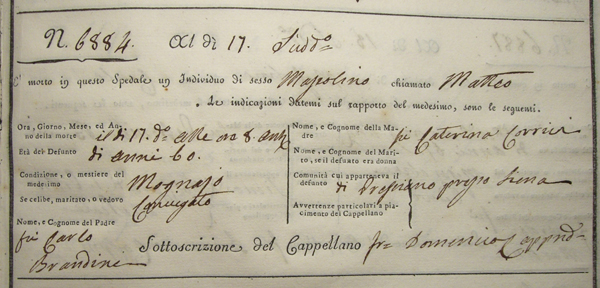 N. 6884. Al dì 17. Sudd.º
E' morto in questo Spedale un Individuo di sesso Mascolino chiamato Matteo
. Le indicazioni datemi sul rapporto del medesimo, sono le seguenti.
Ora, Giorno, Mese, ed An-
no della morte il dì 17. dº alle ore 8. Ant.
Età del Defunto di anni 60.
Condizione, o mestiere del
medesimo Mugnajo
Se celibe, maritato, o vedovo Conjugato
Nome, e Cognome del Padre
fù Carlo
Brandini
Nome, e Cognome della Ma-
dre fù Caterina
Nome, e Cognome del Mari-
to, se il defunto era donna
Comunità cui apparteneva il
defunto di presso Siena
Avvertenze particolari a pia-
cimento del Cappellano
Sottoscrizione del Cappellano fr. Domenico Capp.